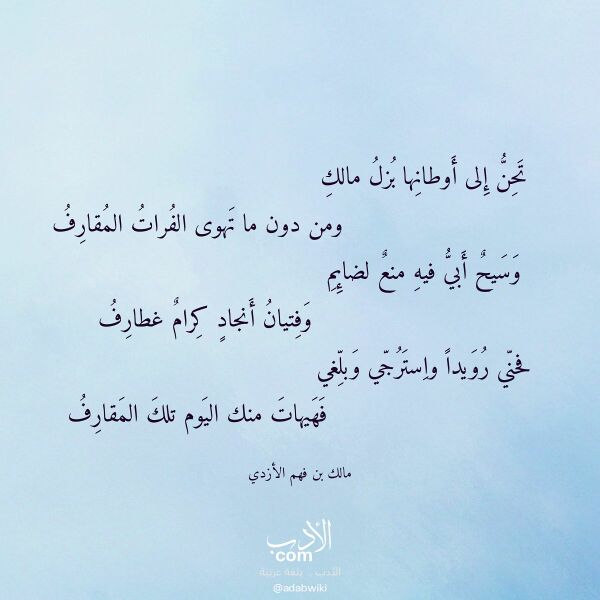 تَحِنُّ إِلى أَوطانِها بُزلُ مالكِ
ومن دون ما تَهوى الفُراتُ المُقارِفُ
وَسَيحٌ أَبيٌّ فيهِ منعٌ لضايِمِ
وَفِتيانُ أَنجادٍ كِرامٌ غطارِفُ
فحنّي رُوَيداً واِستَرُجّي وَبلّغي
فَهَيهاتَ منك اليَوم تلكَ المَقارِفُ
مالك بن فهم الأزدي
الأدب
com
الأدب .. بلغة عربية
@adabwiki